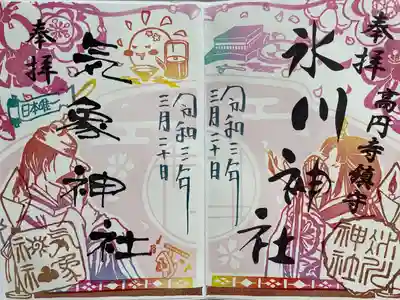 奉拝
高円寺鎮守
氷川神社
令和三年
三月二十日
奉拝
日本唯一
気象神社
令和三年
三月二十日
氷川神社
気象神社